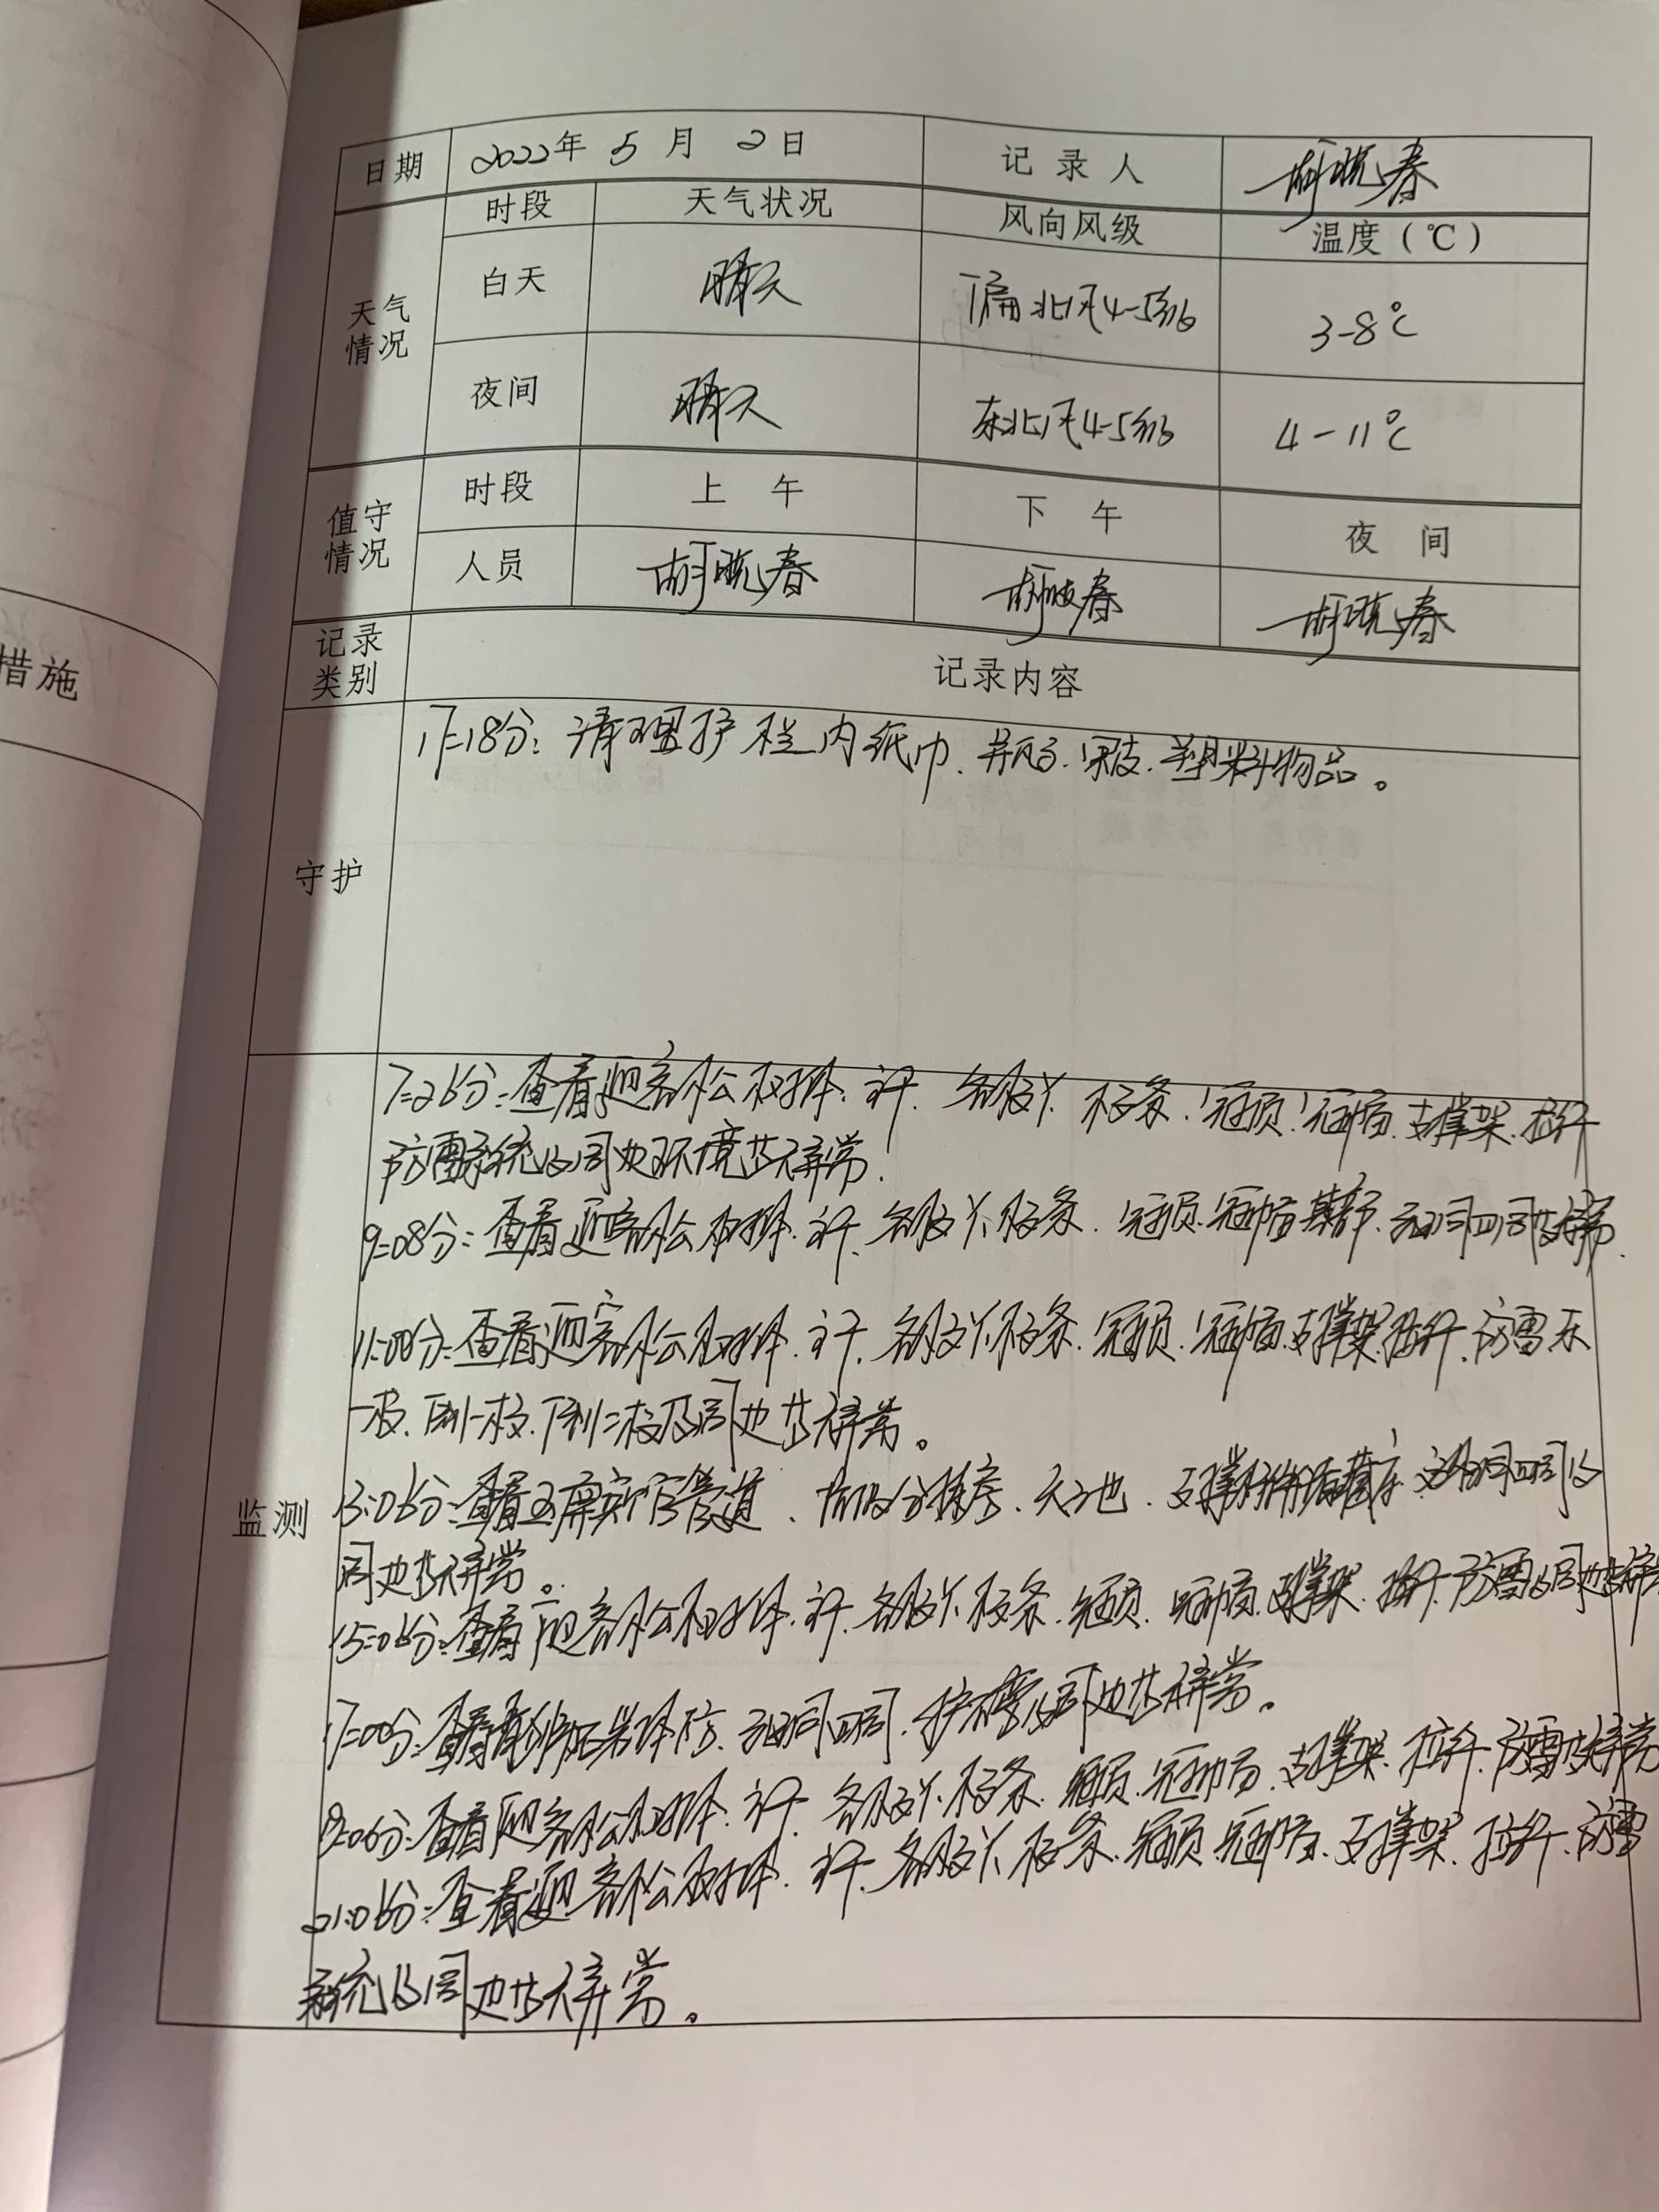 措施
日期 2022年 5 月 2日 记录人 胡晓春
天气情况 时段 天气状况 风向风级 温度(℃)
白天 晴天 偏北风4-5级 3-8℃
夜间 晴天 东北风4-5级 4-11℃
值守情况 时段 上午 下午 夜间
人员 胡晓春 胡晓春 胡晓春
记录类别 记录内容
守护 17=18分:清理护栏内纸巾、果皮、塑料物品。
监测
7=26分:查看迎客松树体、主干、各级丫、枝条、冠顶、冠幅、支撑架、拉纤
防雷系统以及周边环境皆无异常.
9=08分:查看迎客松树体、主干、各级丫、枝条、冠顶、冠幅、基部、四周皆无异常.
11=00分:查看迎客松树体、主干、各级丫、枝条、冠顶、冠幅、支撑架、拉纤、防雷、东
一枝、下侧一枝、下侧二枝及周边皆无异常。
13:06分:查看玉屏管道、天地、支撑、四周及
周边皆无异常。
15=06分:查看迎客松树体、主干、各级丫、枝条、冠顶、冠幅、支撑架、拉纤、防雷及周边皆无异常
17=00分:查看、四周、护及周边皆无异常。
19=06分:查看迎客松树体、主干、各级丫、枝条、冠顶、冠幅、支撑架、拉纤、防雷皆无异常
21:06分:查看迎客松树体、主干、各级丫、枝条、冠顶、冠幅、支撑架、拉纤、防雷
系统以及周边皆无异常。